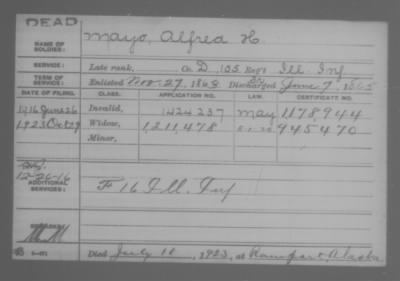 DEAD
NAME OF SOLDIER: Mayo, Alfred H.
SERVICE: Late rank, Co. D, 105 Reg't Ill. Inf
TERM OF SERVICE: Enlisted Nov. 27, 1863 Discharged June 7, 1865
DATE OF FILING. CLASS. APPLICATION NO. LAW. CERTIFICATE NO.
1916 June 26 Invalid, 1424237 May 1178944
1923 Oct 29 Widow, 1,211,478 945470
Minor,
12-26-16
ADDITIONAL SERVICES: F 16 Ill. Inf
Died July 10, 1923, at Rampart, Alaska